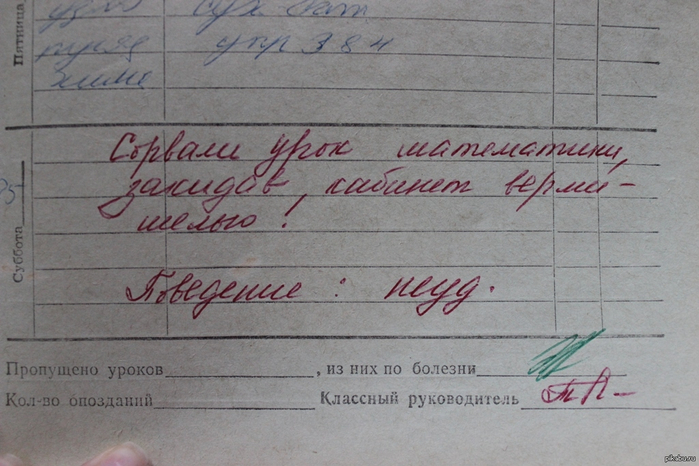 Пятница
упр 384
Сорвали урок математики,
закидав кабинет верми-
шелью!
Суббота
Поведение: неуд.
Пропущено уроков , из них по болезни
Кол-во опозданий Классный руководитель
pikabu.ru